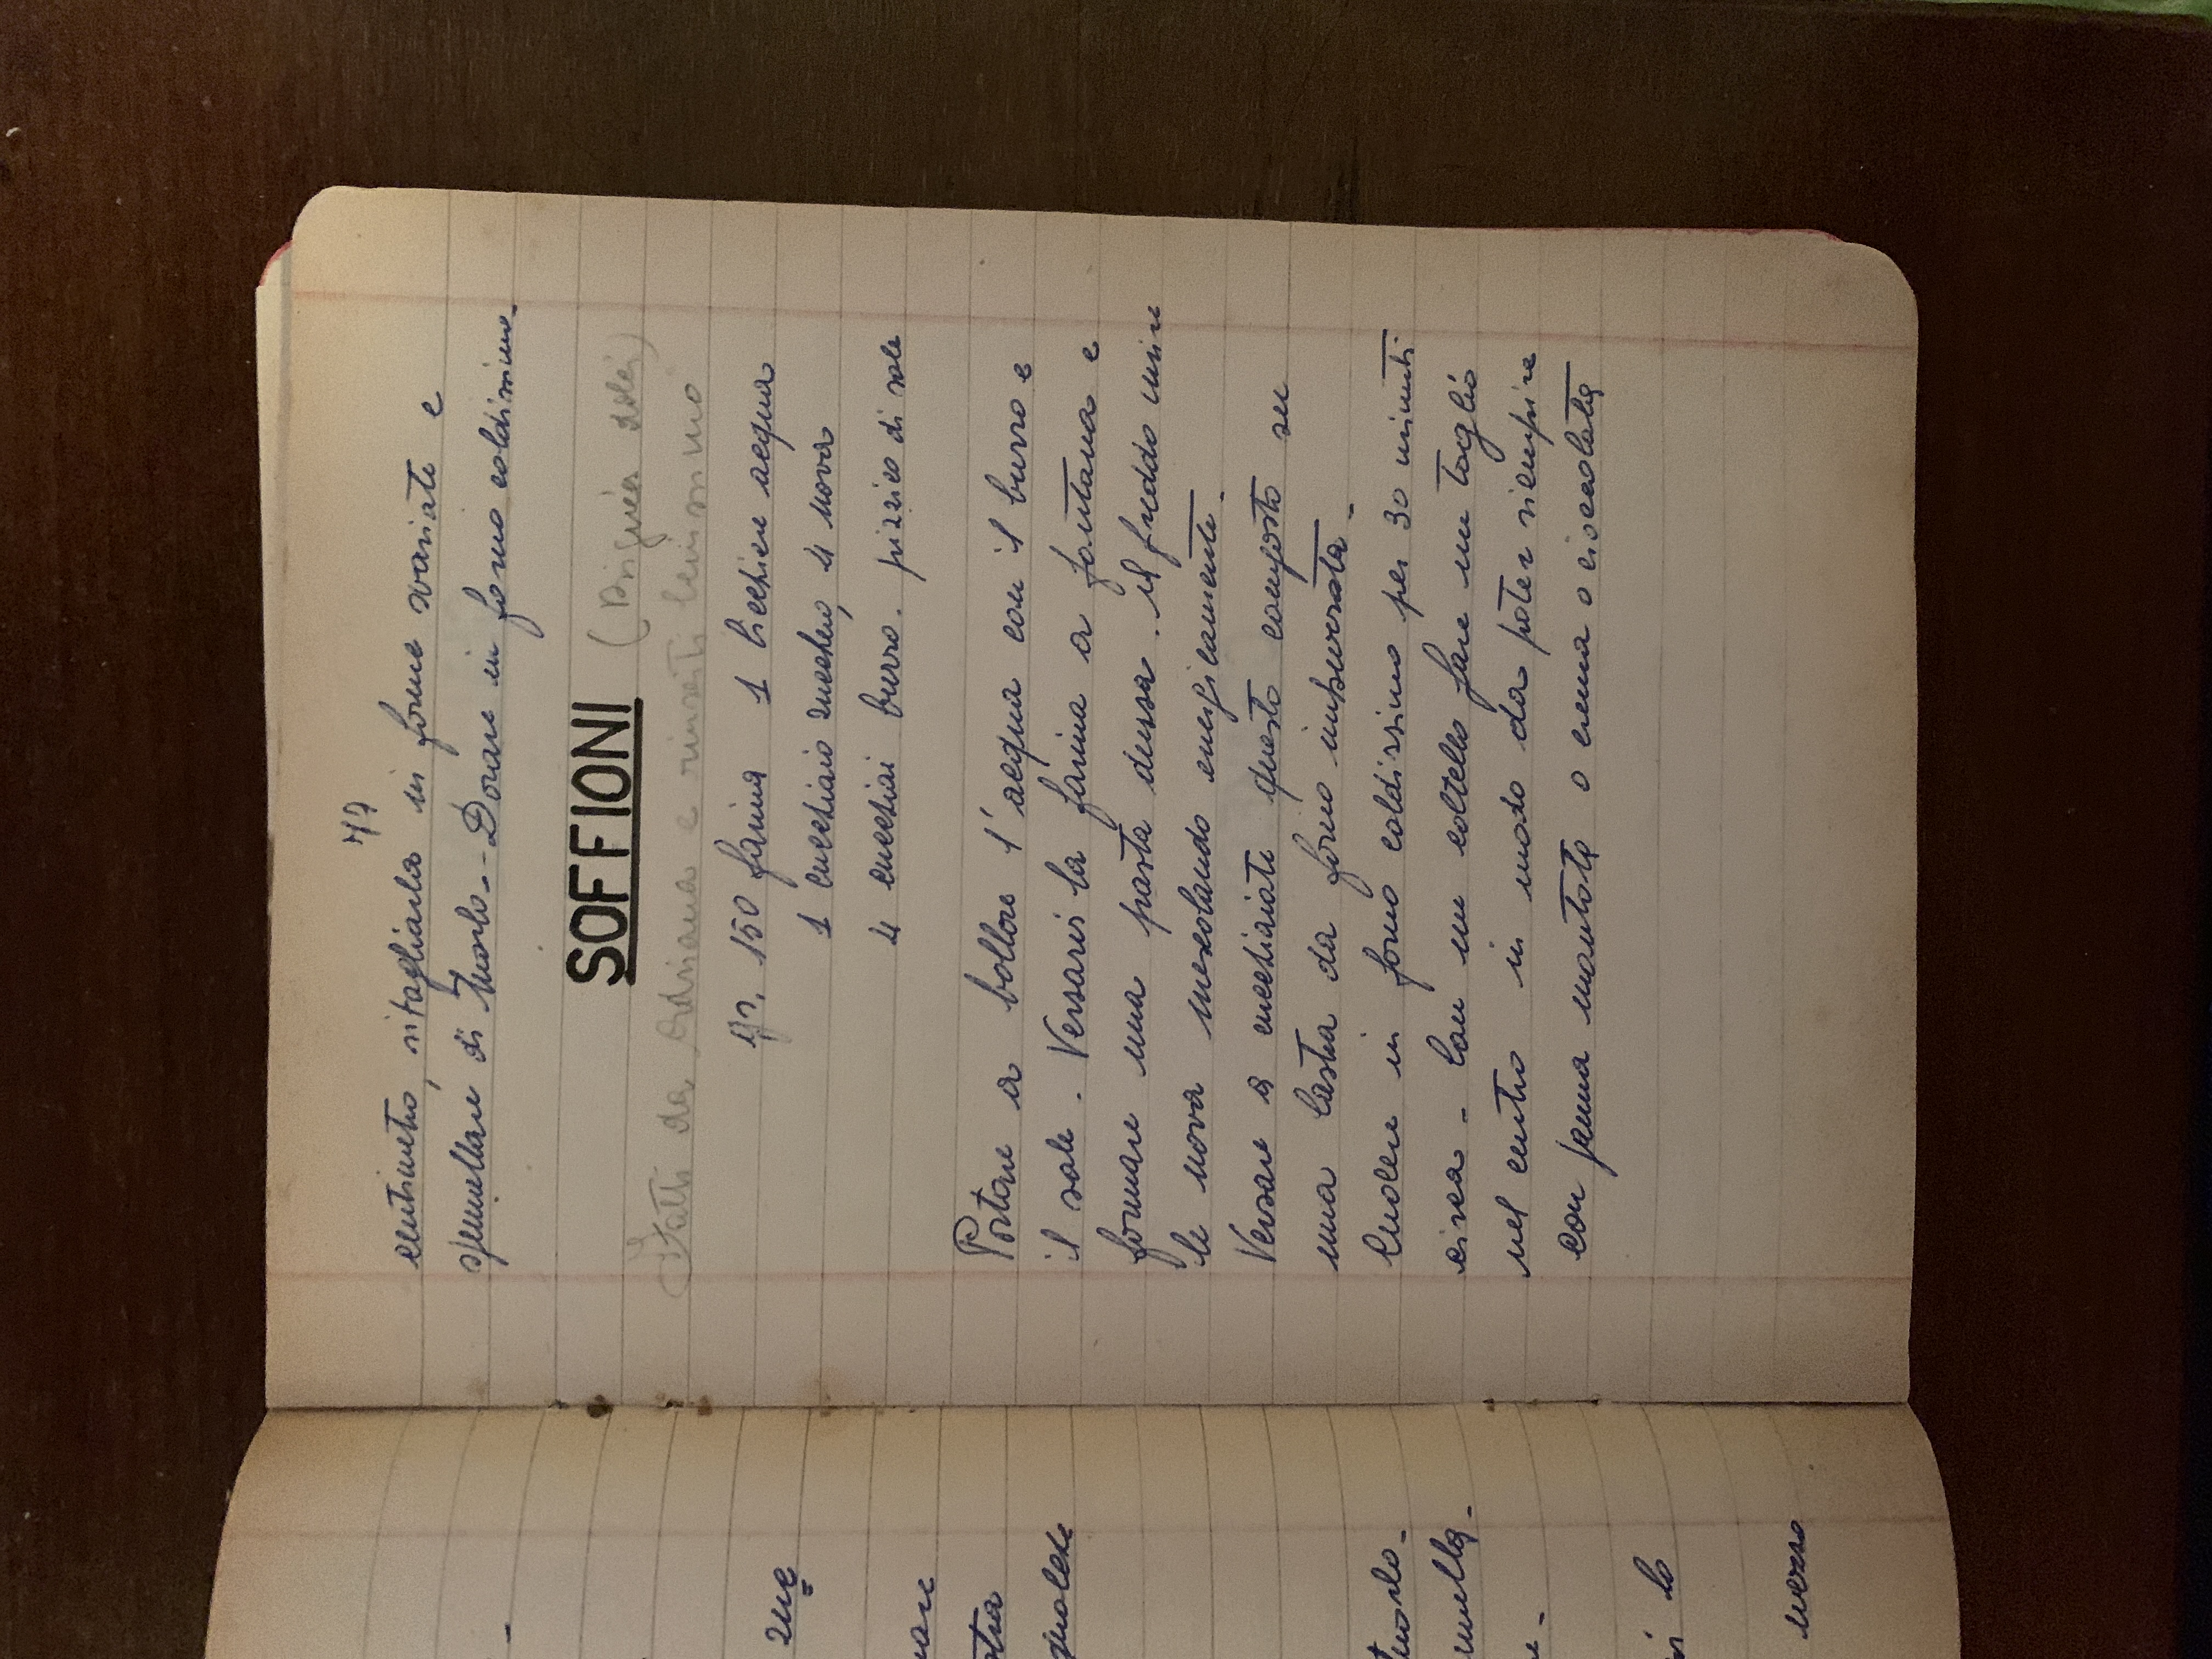 zuc
stra
qualche
tuorlo.
lo
mezzo
47
centimetro, ritagliarla in forme svariate e
spennellare di tuorlo.- Dorare in forno caldissimo.
SOFFIONI (Bignéa dolci)
Fatti da Adriana e riusciti benissimo
gr. 150 farina 1 bicchiere acqua
1 cucchiaio zucchero, 4 uova
4 cucchiai burro. pizzico di sale
Portare a bollore l'acqua con il burro e
il sale. Versarvi la farina a fontana e
formare una pasta densa. A freddo unire
le uova mescolando energicamente.
Versare a cucchiaiate questo composto su
una lastra da forno imburrata.
Cuocere in forno caldissimo per 30 minuti
circa - Con un coltello fare un taglio
nel centro in modo da poter riempire
con panna montata o crema o cioccolata